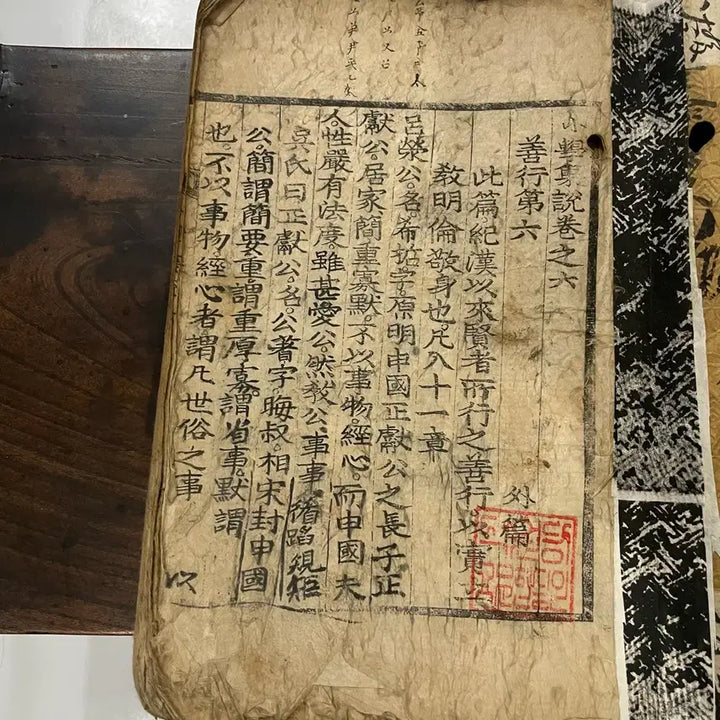 小學集說卷之六
善行第六 外篇
此篇紀漢以來賢者所行之善行以實立
敎明倫敬身也。凡八十一章
呂滎公。名希哲字原明申國正獻公之長子正
獻公。居家簡重寡默。不以事物。經心。而申國夫
人性嚴有法度。雖甚愛公。然敎公事事循蹈規矩
吳氏曰正獻公。名。公著字。晦叔。相宋封申國
公。簡謂簡要。重謂重厚。寡謂省事。默謂
也。不以事物經心者謂凡世俗之事
以